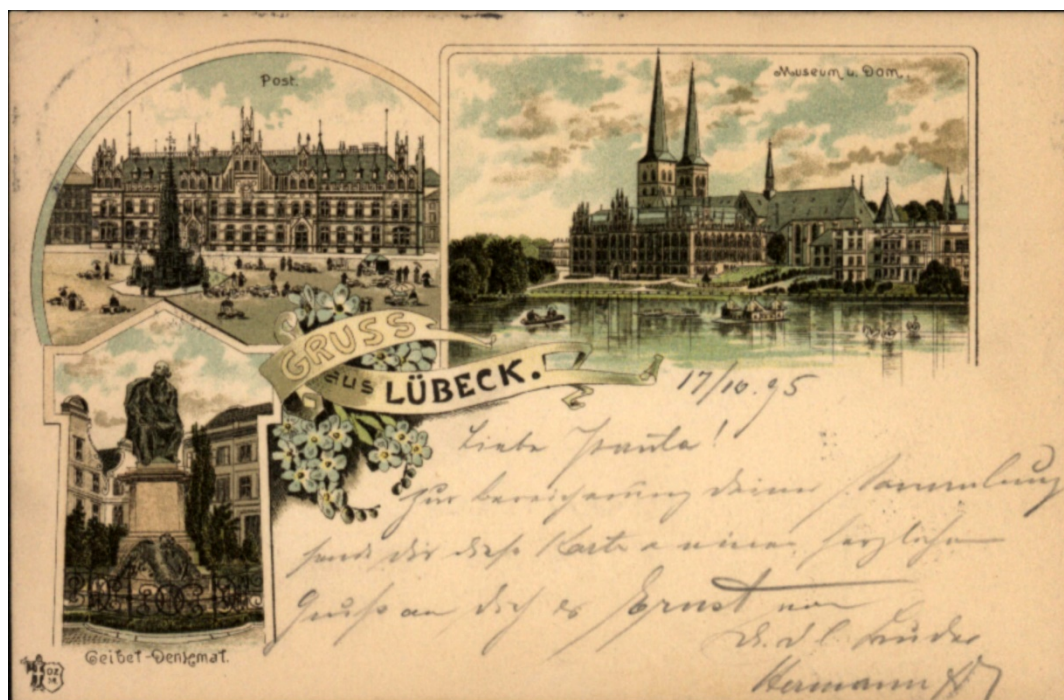 Post.
Museum u. Dom.
GRUSS
aus LÜBECK.
Geibel-Denkmal.
17/10.95
Liebe Paula!
Zur Bereicherung deiner Sammlung
sende dir diese Karte einen herzlichen
Gruß an dich Ernst von
Bruder
Hermann